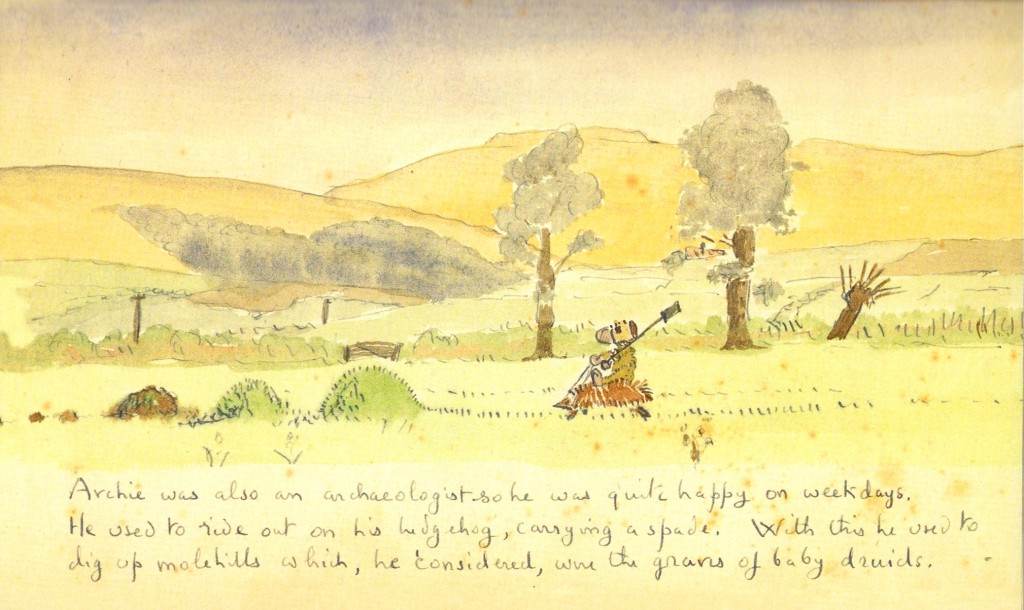 Archie was also an archaeologist so he was quite happy on weekdays.
He used to ride out on his hedgehog, carrying a spade. With this he used to
dig up molehills which, he considered, were the graves of baby druids.